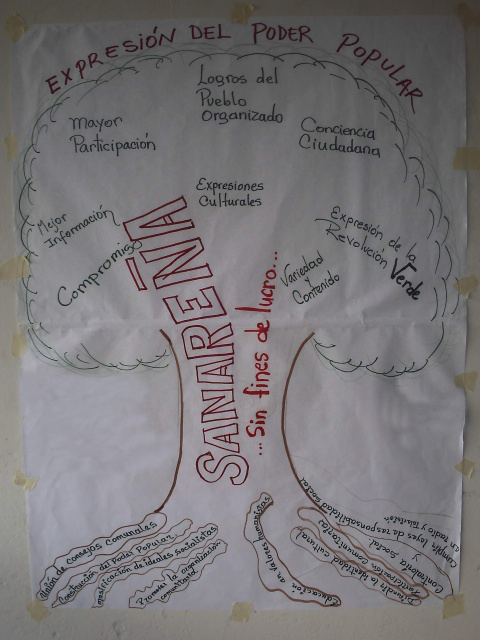 EXPRESIÓN DEL PODER POPULAR
Logros del
Pueblo
Organizado
Mayor
Participación
Conciencia
Ciudadana
Expresiones
Culturales
Mejor
Información
Compromiso
Expresión de la
Revolución
Verde
Variedad
y
Contenido
SANAREÑA
...Sin fines de lucro...
Unión de consejos comunales
Construcción del Poder Popular
masificación de ideales socialistas
Promover la organización
comunitaria
Educación en valores humanistas
Difundir la identidad cultural
Participación comunitaria
Contraloría Social
y
Cumplir leyes de responsabilidad social
en radio y televisión